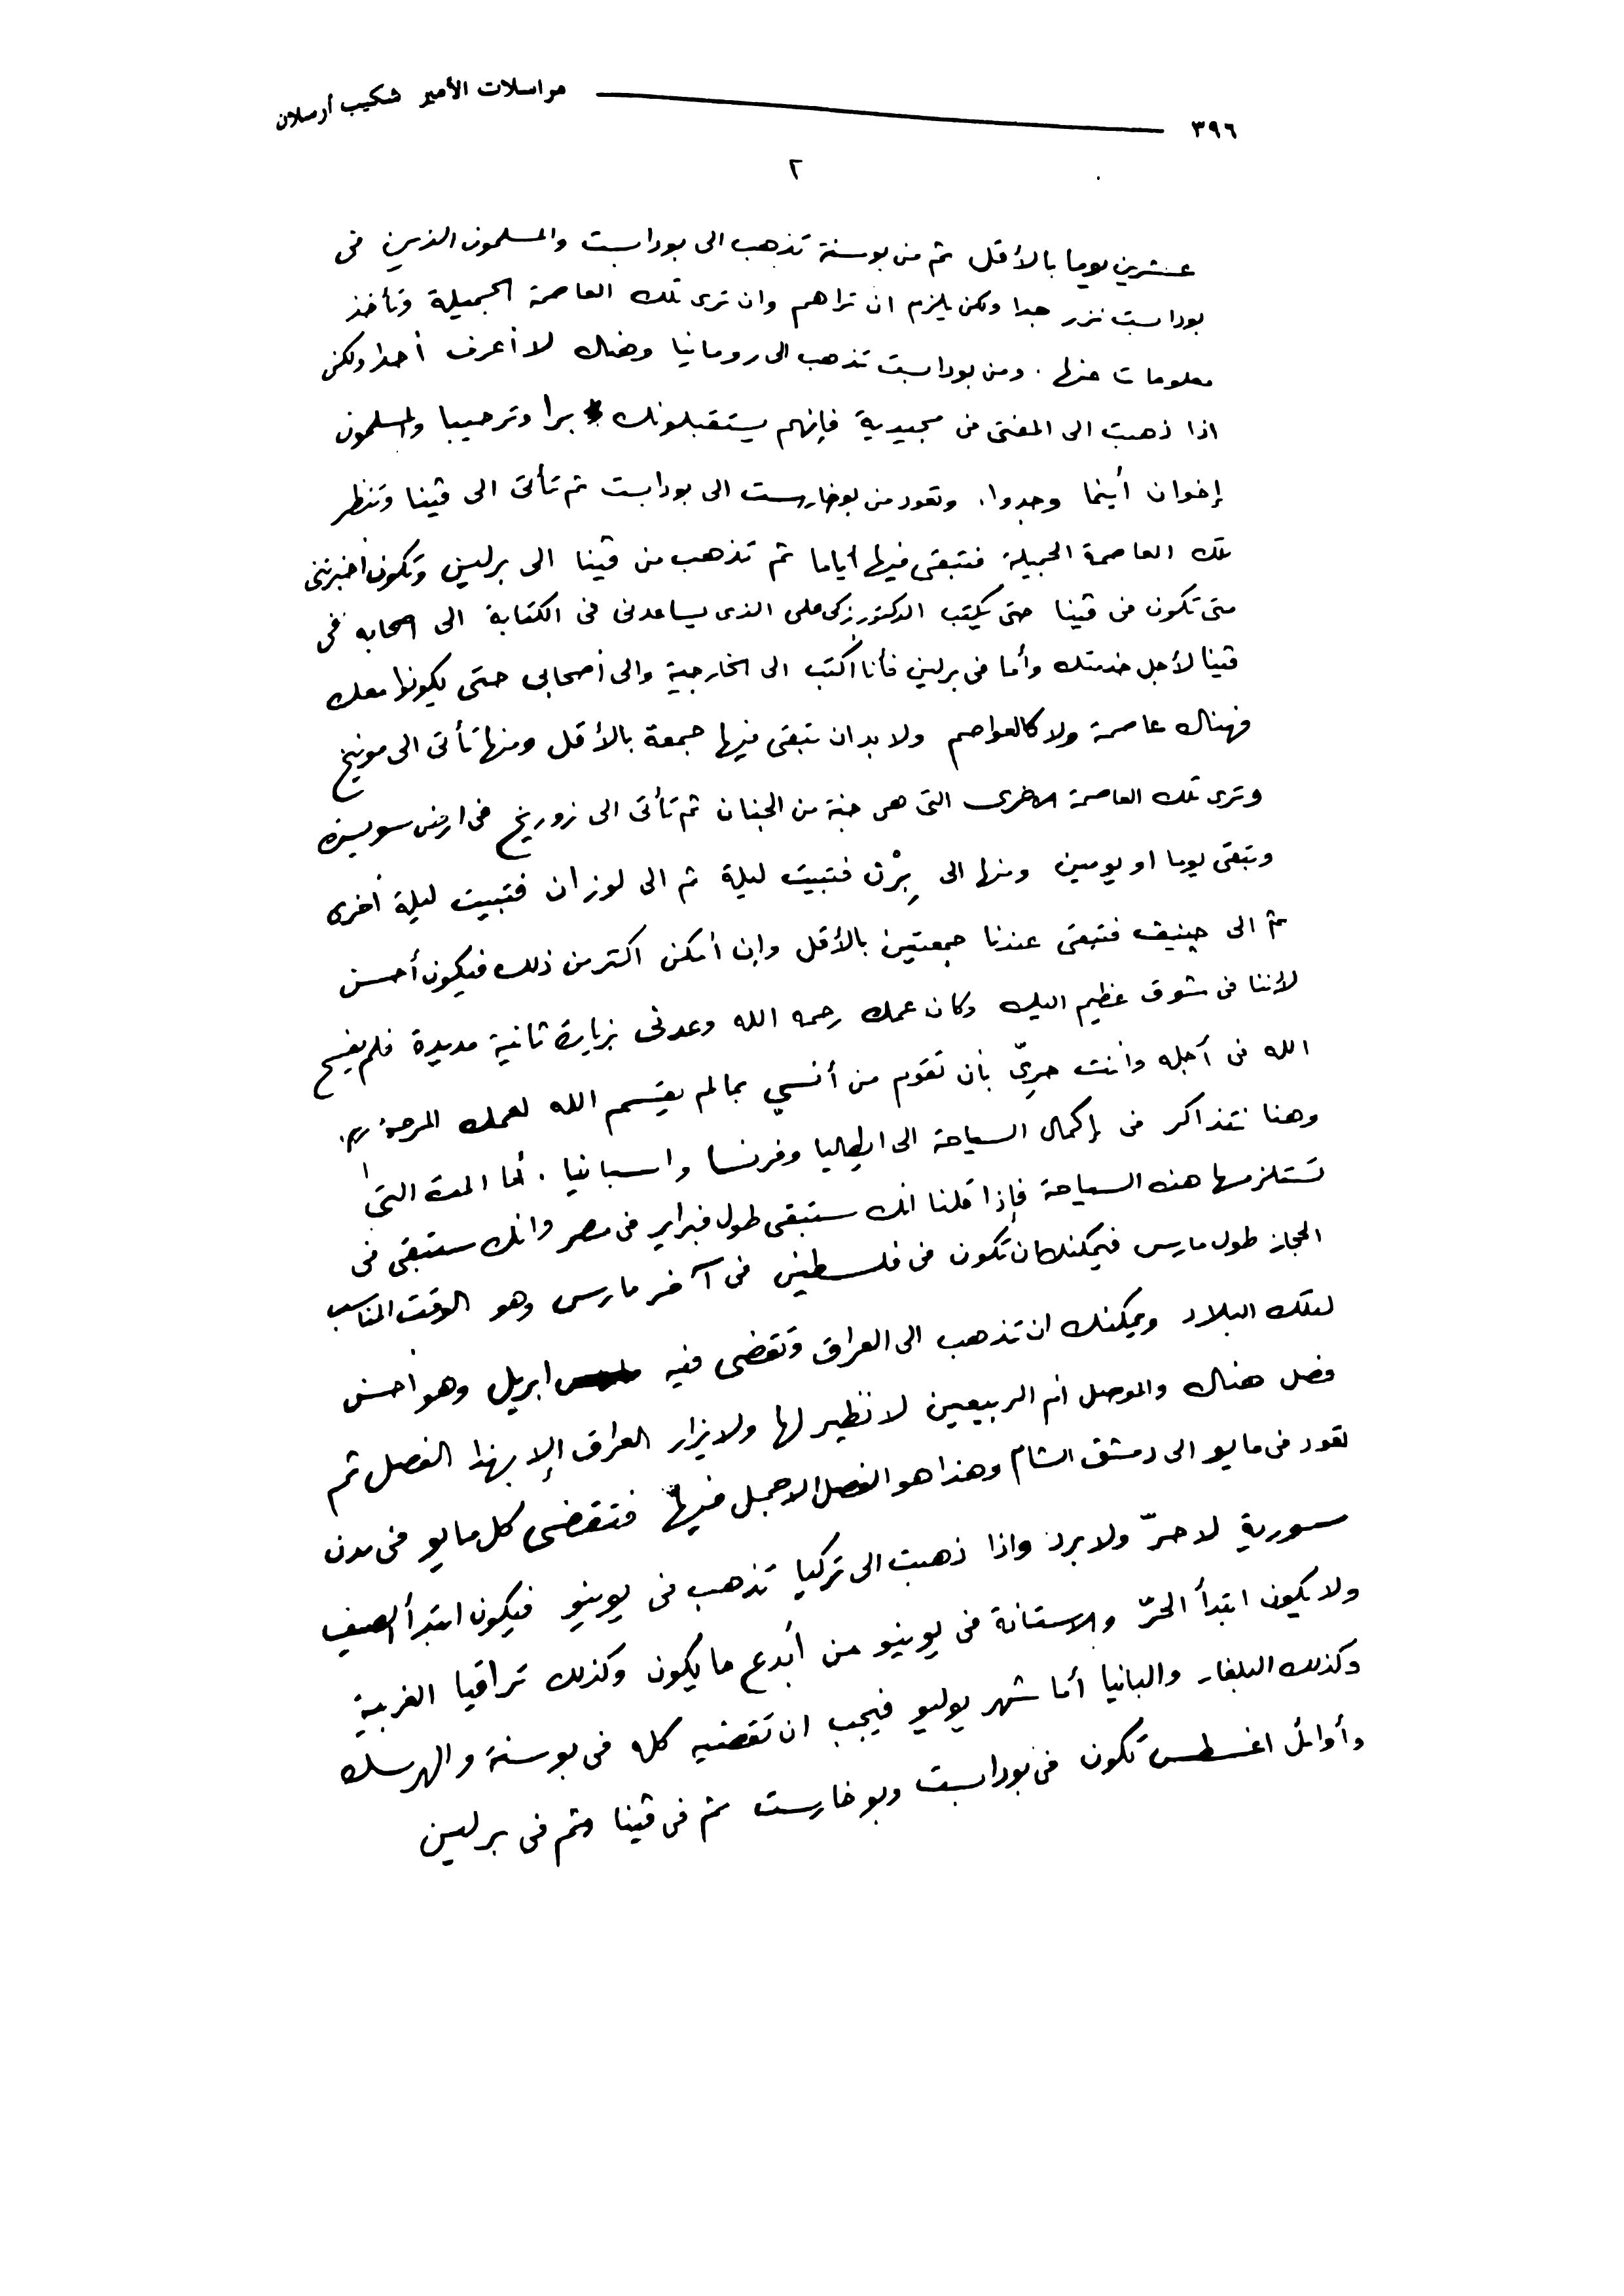 ٣٩٦ مراسلات الأمير شكيب أرسلان
٢
عشرين يوما بالأقل ثم من بوسنة تذهب الى بودابست والمسلمون الذين فى
بودابست نزر جدا ولكن يلزم ان تراهم وان ترى تلك العاصمة الجميلة وتأخذ
معلومات عنها . ومن بودابست تذهب الى رومانيا وهناك لا أعرف أحدا ولكن
اذا ذهبت الى المفتى فى مجيدية فإنهم يستقبلونك برا وترحيبا والمسلمون
إخوان أينما وجدوا . وتعود من بوخارست الى بودابست ثم تأتى الى ڤينا وتنظر
تلك العاصمة الجميلة فتبقى فيها أياما ثم تذهب من ڤينا الى برلين وتكون أخبرتنى
متى تكون فى ڤينا حتى يكتب الدكتور زكى على الذى يساعدنى فى الكتابة الى اصحابه فى
ڤينا لأجل خدمتك وأما فى برلين فأنا أكتب الى الخارجية والى أصحابى حتى يكونوا معك
فهناك عاصمة ولا كالعواصم ولا بد ان تبقى فيها جمعة بالأقل ومنها تأتى الى مونيخ
وترى تلك العاصمة الاخرى التى هى جنة من الجنان ثم تأتى الى زوريخ فى ارض سويسرة
وتبقى يوما او يومين ومنها الى بِرْن فتبيت ليلة ثم الى لوزان فتبيت ليلة أخرى
ثم الى جنيف فتبقى عندنا جمعتين بالأقل وإن أمكن اكثر من ذلك فيكون أحسن
لأننا فى شوق عظيم اليك وكان عمك رحمه الله وعدنى بزيارة ثانية مديدة فلم يفسح
الله فى أجله وأنت حرىّ بأن تقوم من أنسى بما لم يقسم الله لعمك المرحوم
وهنا نتذاكر فى إكمال السياحة الى ايطاليا وفرنسا واسبانيا . أما المدة التى
تستلزمها هذه السياحة فإذا قلنا انك ستبقى طول فبراير فى مصر وانك ستبقى فى
الحجاز طول مارس فيمكنك ان تكون فى فلسطين فى آخر مارس وهو الوقت المناسب
لتلك البلاد ويمكنك ان تذهب الى العراق وتقضى فيه ابريل وهو أحسن
فصل هناك والموصل ام الربيعين لا نظير لها ولا يزار العراق إلا بهذا الفصل ثم
تعود فى مايو الى دمشق الشام وهذا هو الفصل الاجمل فيها فتقضى كل مايو فى مدن
سورية لا حرّ ولا برد واذا ذهبت الى تركيا تذهب فى يونيو فيكون ابتدأ الصيف
ولا يكون ابتدأ الحرّ والاستانة فى يونيو من أبدع ما يكون وكذلك تراقيا الغربية
وكذلك البلغار والبانيا أما شهر يوليو فيجب ان تقضيه كله فى بوسنة والهرسك
وأوائل اغسطس تكون فى بودابست وبوخارست ثم فى ڤينا وثم فى برلين